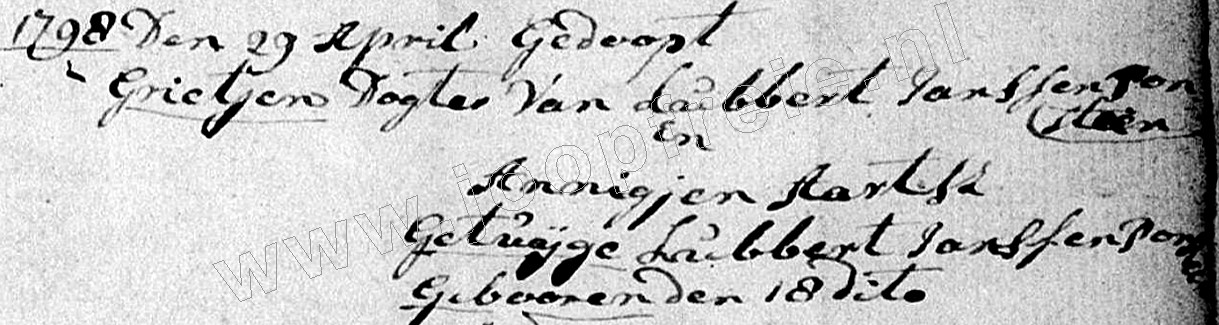 1798 Den 29 April Gedoopt
Grietjen Dogter Van Lubbert Janssen Pon
steen
En
Annigjen Aartse
Getuijge Lubbert Janssen Pon
Gebooren den 18 dito
www.jooprele.nl